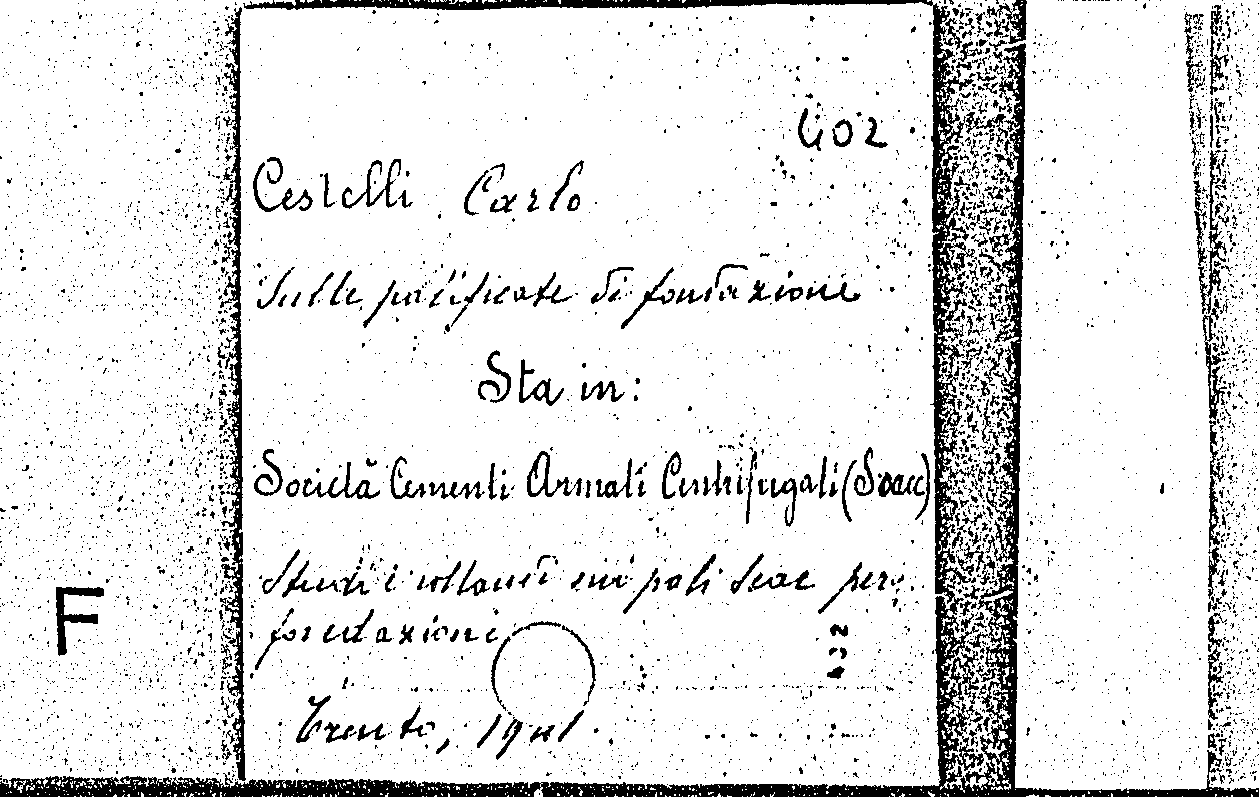 402
Cestelli Carlo
Sulle palificate di fondazione
Sta in:
Società Cementi Armati Centrifugati (Scac)
Studi i sui pali Scac per
fondazioni
Trento, 19
F